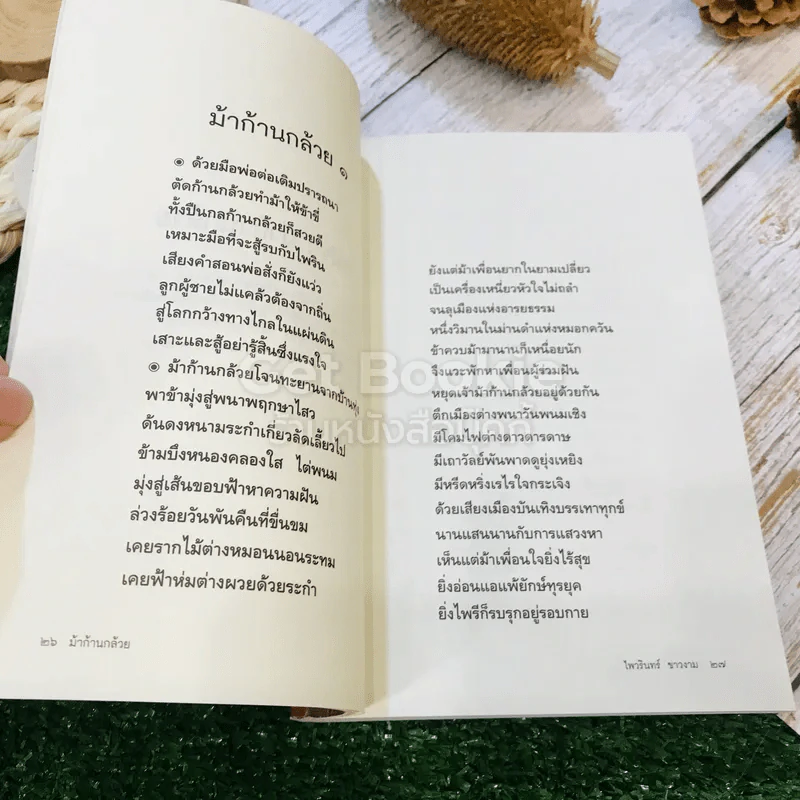 ม้าก้านกล้วย ๑
๏ ด้วยมือพ่อต่อเติมปรารถนา
ตัดก้านกล้วยทำม้าให้ข้าขี่
ทั้งปืนกลก้านกล้วยก็สวยดี
เหมาะมือที่จะสู้รบกับไพริน
เสียงคำสอนพ่อสั่งก็ยังแว่ว
ลูกผู้ชายไม่แคล้วต้องจากถิ่น
สู่โลกกว้างทางไกลในแผ่นดิน
เสาะและสู้อย่ารู้สิ้นซึ่งแรงใจ
๏ ม้าก้านกล้วยโจนทะยานจากบ้านทุ่ง
พาข้ามุ่งสู่พนาพฤกษาไสว
ด้นดงหนามระกำเกี่ยวลัดเลี้ยวไป
ข้ามบึงหนองคลองใส ไต่พนม
มุ่งสู่เส้นขอบฟ้าหาความฝัน
ล่วงร้อยวันพันคืนที่ขื่นขม
เคยรากไม้ต่างหมอนนอนระทม
เคยฟ้าห่มต่างผวยด้วยระกำ
๒๖ ม้าก้านกล้วย
ยังแต่ม้าเพื่อนยากในยามเปลี่ยว
เป็นเครื่องเหนี่ยวหัวใจไม่ถลำ
จนลุเมืองแห่งอารยธรรม
หนึ่งวิมานในม่านดำแห่งหมอกควัน
ข้าควบม้ามานานก็เหนื่อยนัก
จึงแวะพักหาเพื่อนผู้ร่วมฝัน
หยุดเจ้าม้าก้านกล้วยอยู่ด้วยกัน
ตึกเมืองต่างพนาวันพนมเชิง
มีโคมไฟต่างดาวดารดาษ
มีเถาวัลย์พันพาดดูยุ่งเหยิง
มีหรีดหริ่งเรไรใจกระเจิง
ด้วยเสียงเมืองบันเทิงบรรเทาทุกข์
นานแสนนานกับการแสวงหา
เห็นแต่ม้าเพื่อนใจยิ่งไร้สุข
ยิ่งอ่อนแอแพ้ยักษ์ทุรยุค
ยิ่งไพรีก็รบรุกอยู่รอบกาย
ไพวรินทร์ ขาวงาม ๒๗
Get Bookie
ร้านหนังสือบุคคี้